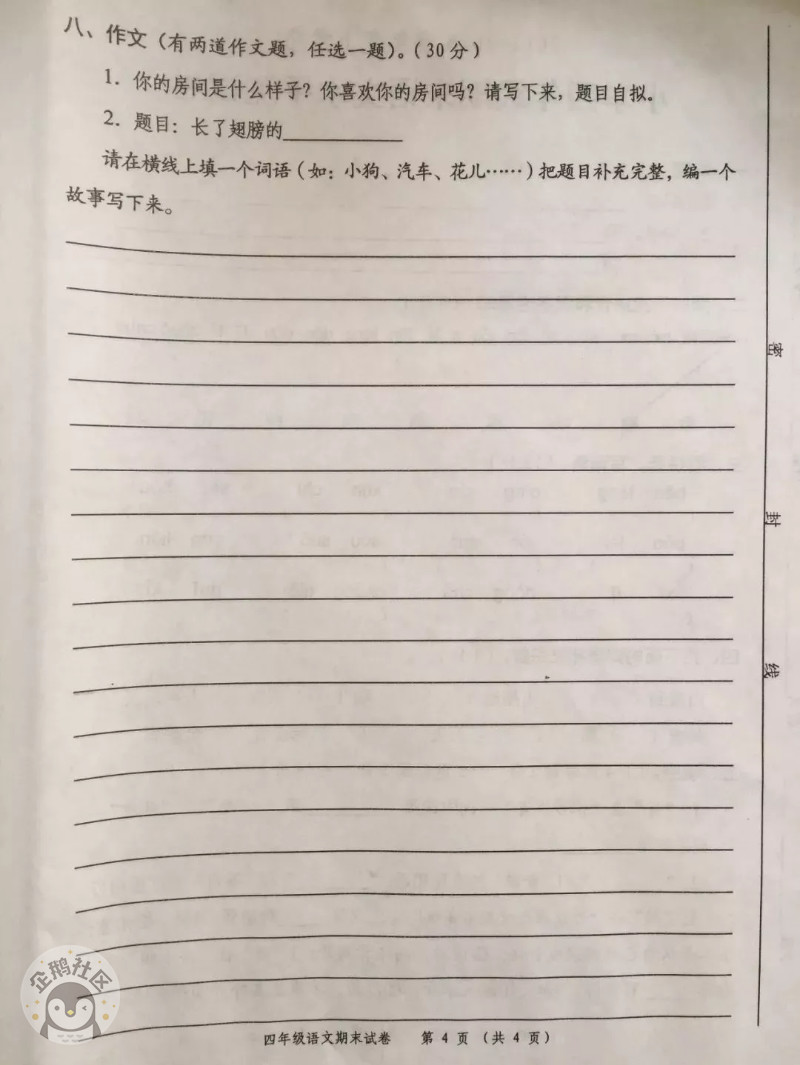 八、作文（有两道作文题，任选一题）。（30分）
1. 你的房间是什么样子？你喜欢你的房间吗？请写下来，题目自拟。
2. 题目：长了翅膀的____________
请在横线上填一个词语（如：小狗、汽车、花儿……）把题目补充完整，编一个
故事写下来。
密
封
线
企鹅社区
四年级语文期末试卷 第 4 页 （共 4 页）